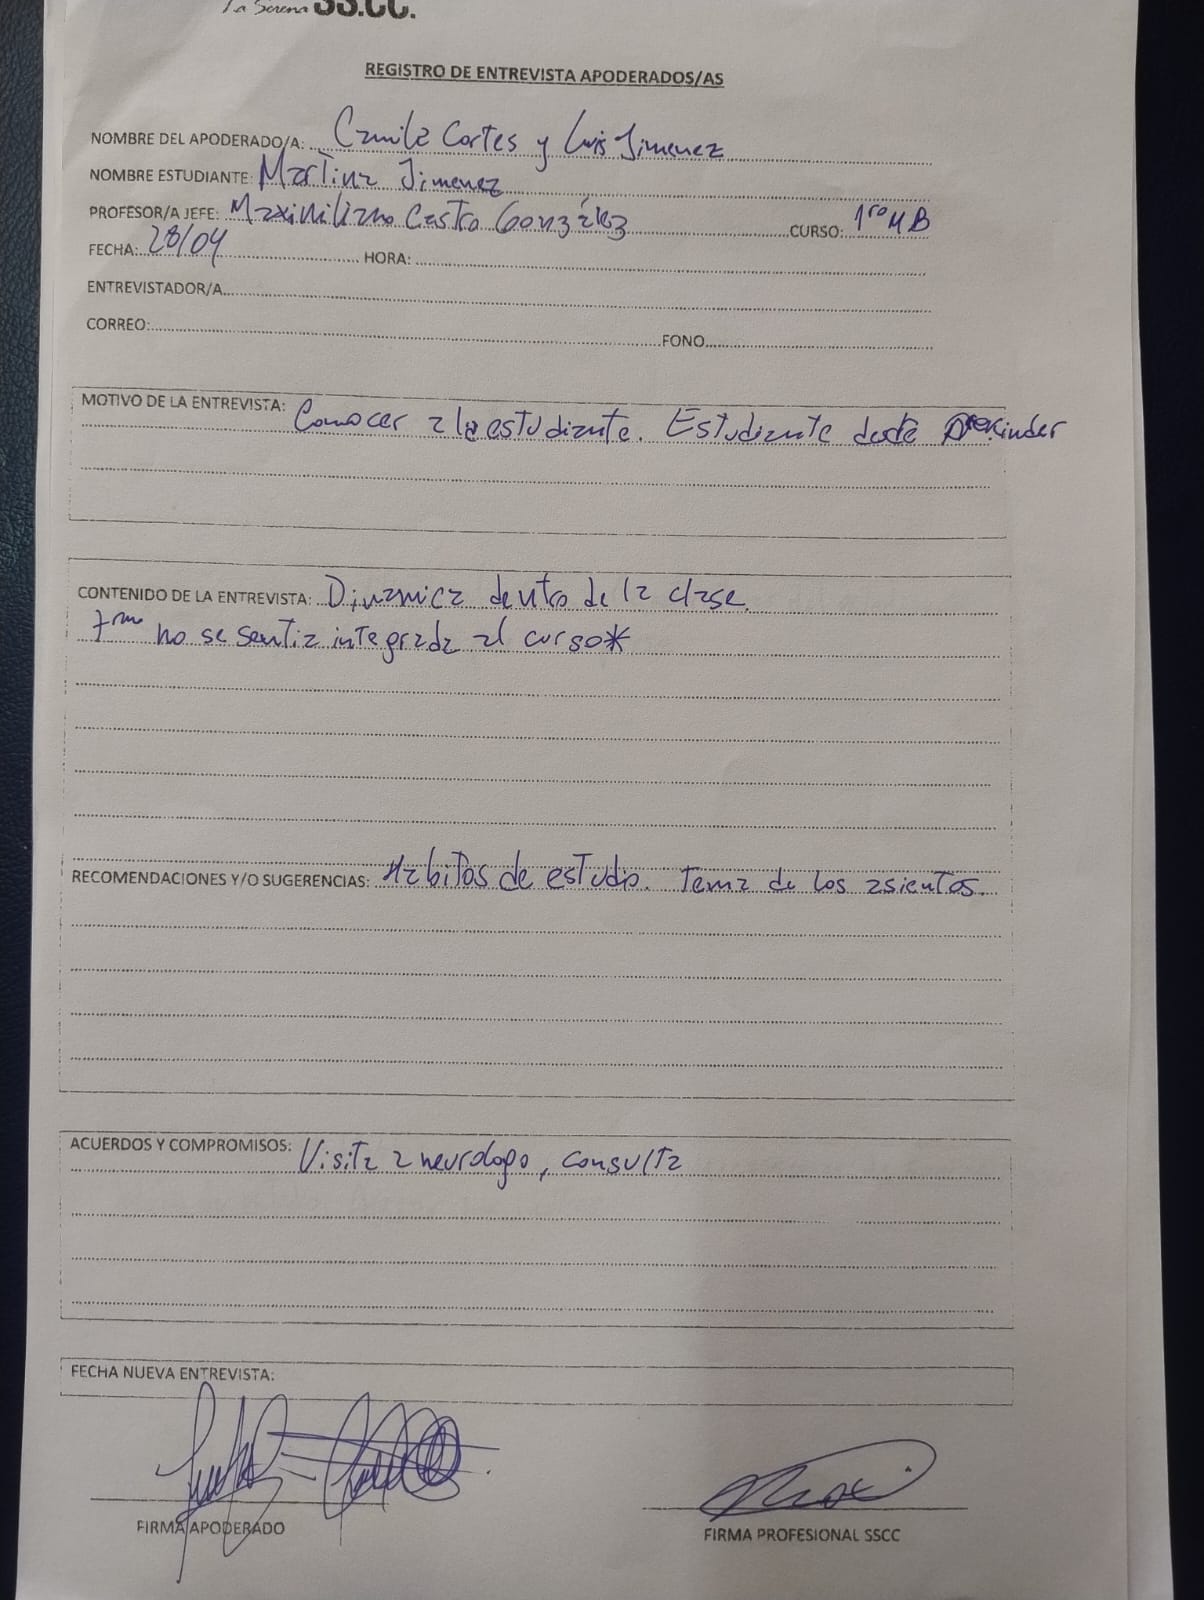 La Serena SS.CC.
REGISTRO DE ENTREVISTA APODERADOS/AS
NOMBRE DEL APODERADO/A: Camila Cortes y Luis Jimenez
NOMBRE ESTUDIANTE: Martina Jimenez
PROFESOR/A JEFE: Maximiliano Castro González CURSO: 1ro M B
FECHA: 28/04 HORA:
ENTREVISTADOR/A
CORREO: FONO
MOTIVO DE LA ENTREVISTA: Conocer a la estudiante. Estudiante desde Prekinder
CONTENIDO DE LA ENTREVISTA: Dinamica dentro de la clase.
no se sentia integrada al curso*
RECOMENDACIONES Y/O SUGERENCIAS: Habitos de estudio. Tema de los asientos.
ACUERDOS Y COMPROMISOS: Visita a neurologo, consulta
FECHA NUEVA ENTREVISTA:
FIRMA APODERADO
FIRMA PROFESIONAL SSCC